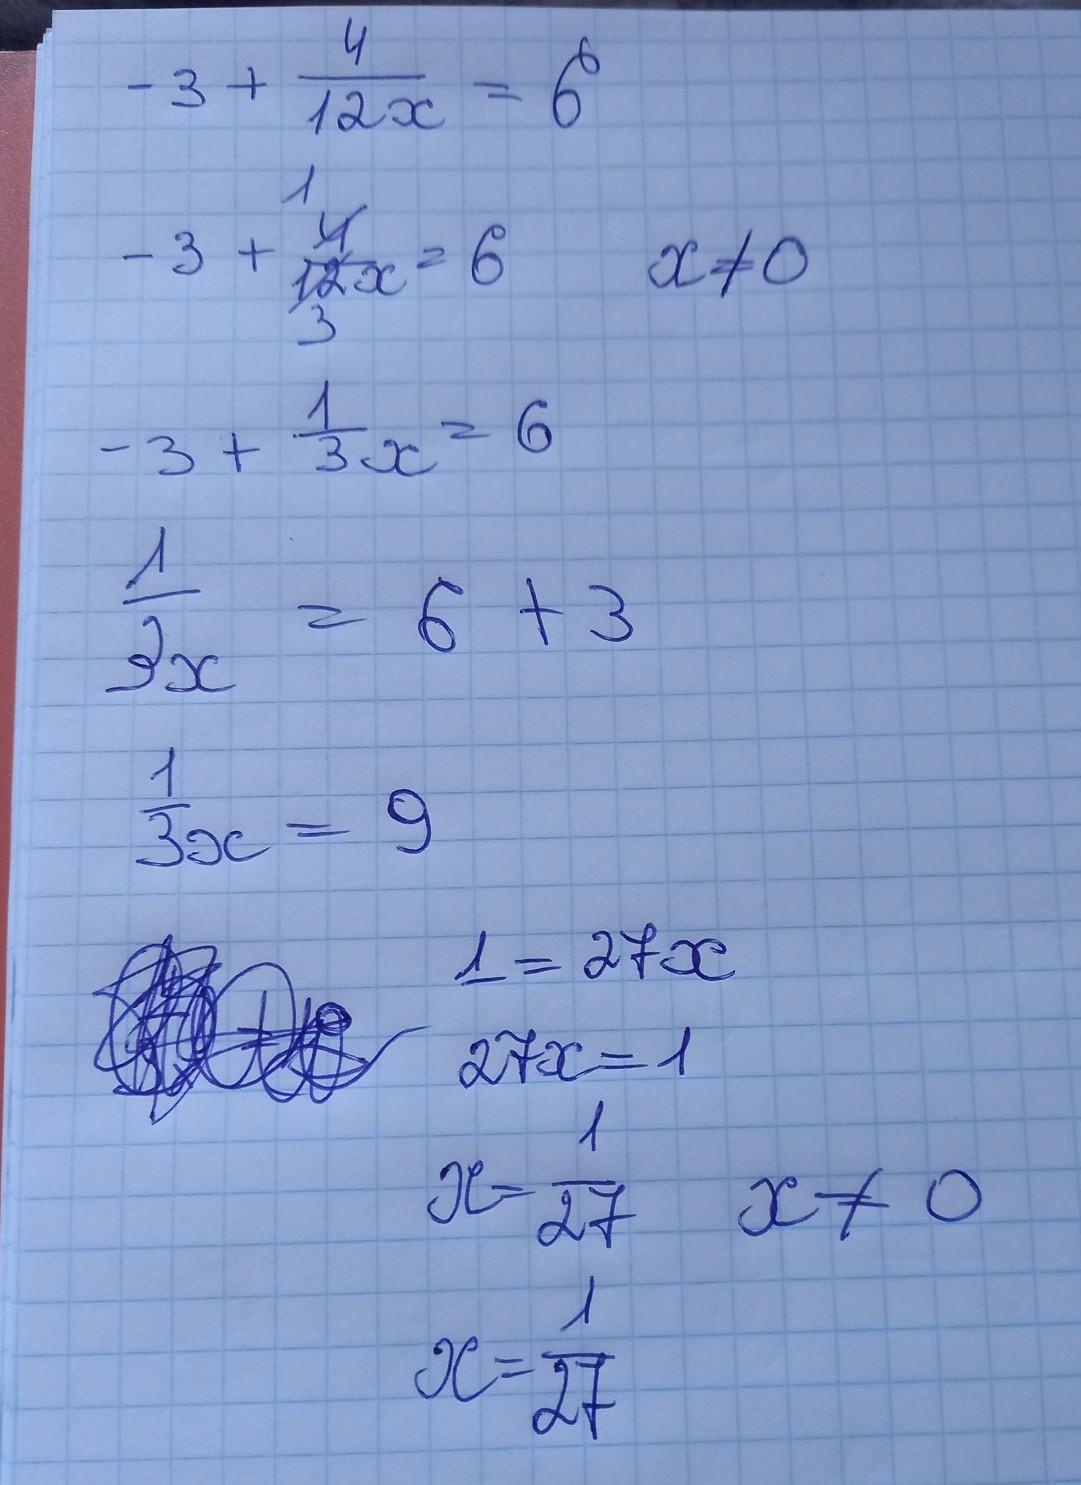 -3 + 4/12x = 6
-3 + 4/12x = 6 x≠0
1
3
-3 + 1/3 x = 6
1/3x = 6 + 3
1/3x = 9
1 = 27x
27x = 1
x = 1/27 x ≠ 0
x = 1/27